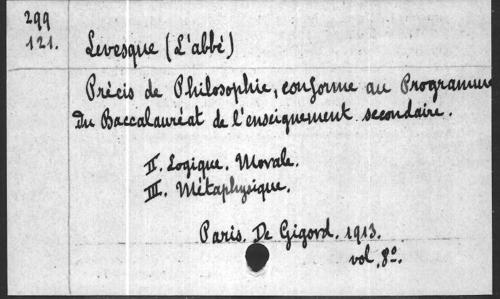 299
121.
Levesque (L'abbé)
Précis de Philosophie, conforme au Programme
du Baccalauréat de l'enseignement secondaire.
II. Logique. Morale.
III. Métaphysique.
Paris. De Gigord. 1913.
vol. 8º.